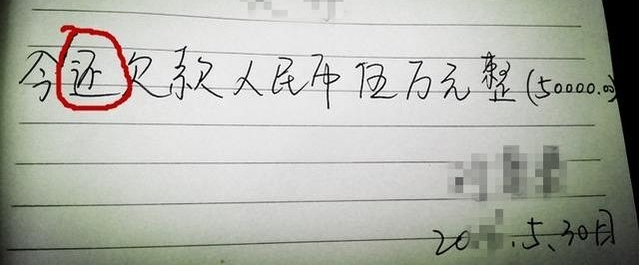 今还欠款人民币伍万元整(50000.00)
20 .5、30日